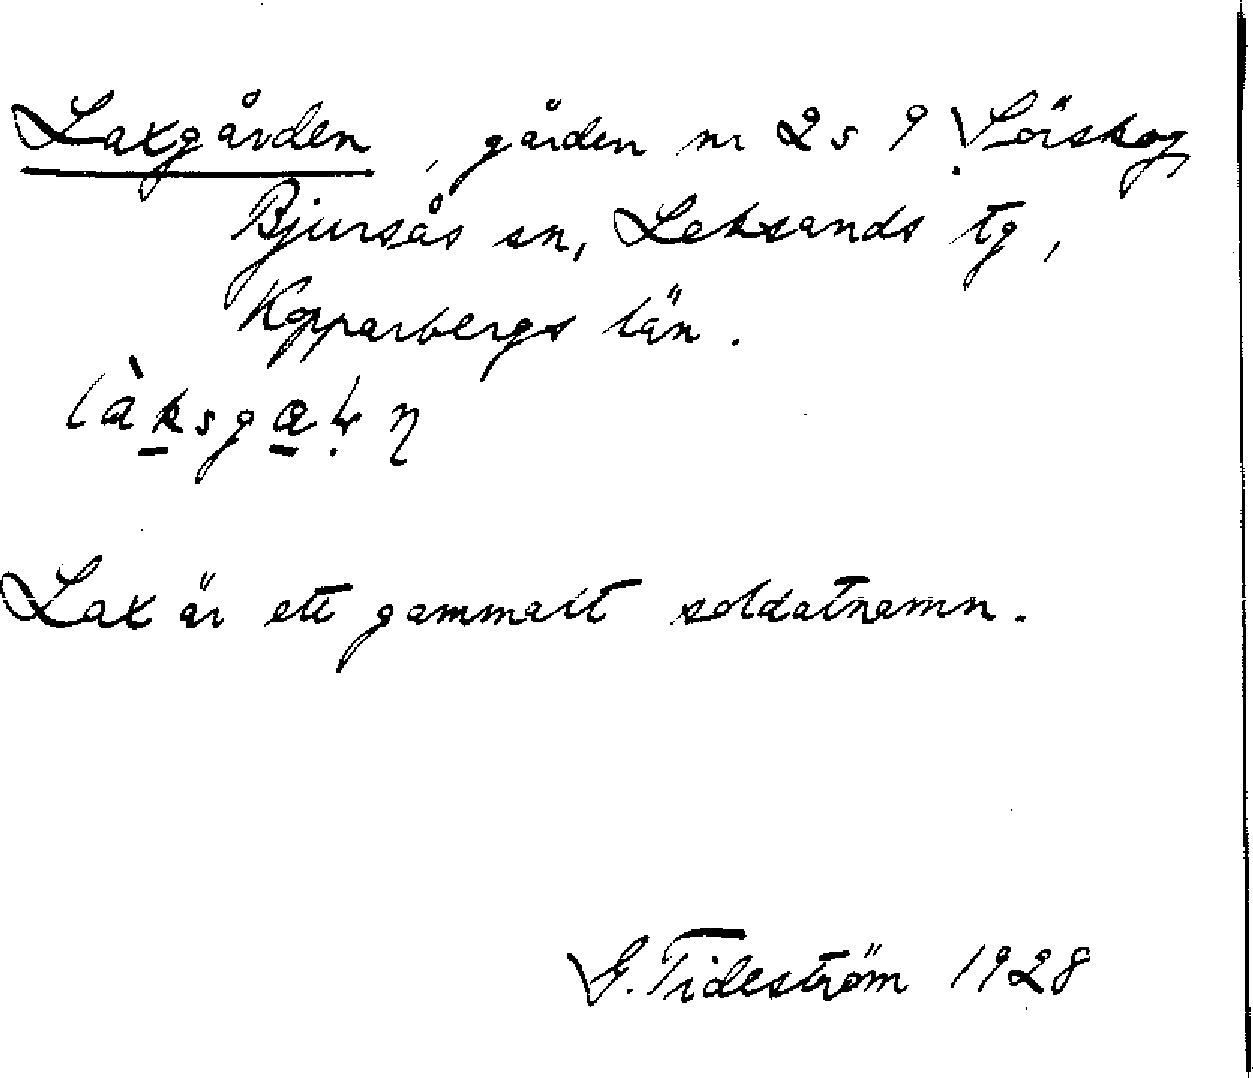 Laxgården, gården nr 2 s 9. Sörskog,
Bjursås sn, Leksands tg,
Kopparbergs län.
làksgaɽn̥
Lax är ett gammalt soldatnamn.
G. Tideström 1928